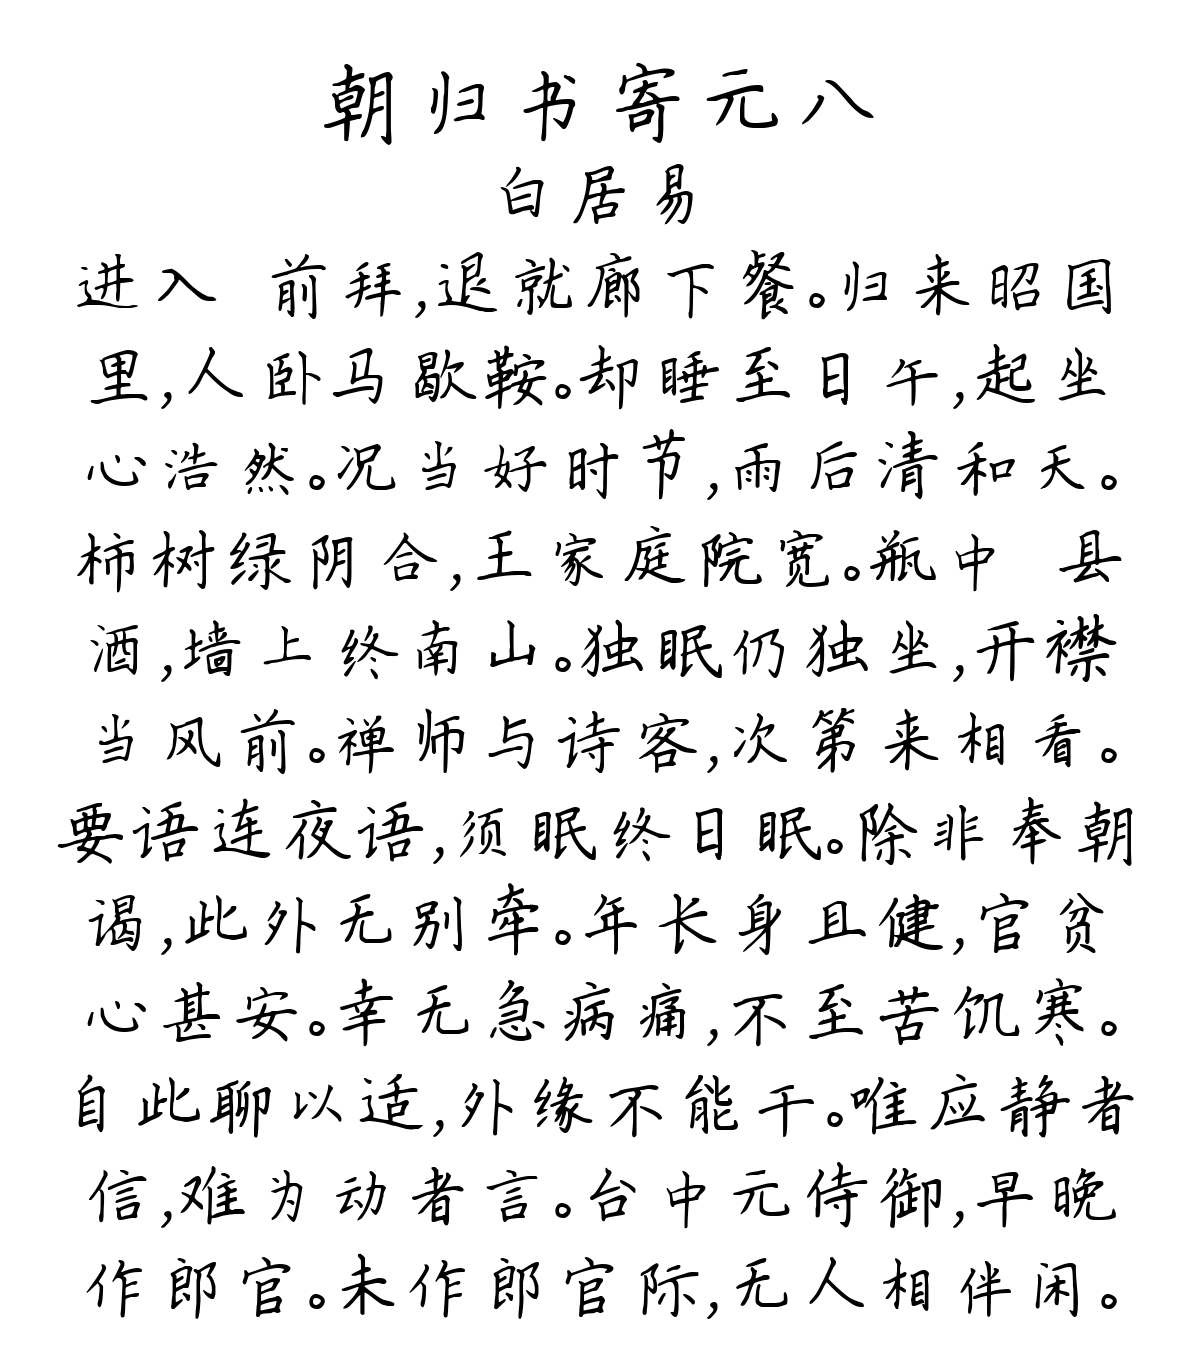 朝归书寄元八
白居易
进入 前拜,退就廊下餐。归来昭国
里,人卧马歇鞍。却睡至日午,起坐
心浩然。况当好时节,雨后清和天。
柿树绿阴合,王家庭院宽。瓶中 县
酒,墙上终南山。独眠仍独坐,开襟
当风前。禅师与诗客,次第来相看。
要语连夜语,须眠终日眠。除非奉朝
谒,此外无别牵。年长身且健,官贫
心甚安。幸无急病痛,不至苦饥寒。
自此聊以适,外缘不能干。唯应静者
信,难为动者言。台中元侍御,早晚
作郎官。未作郎官际,无人相伴闲。